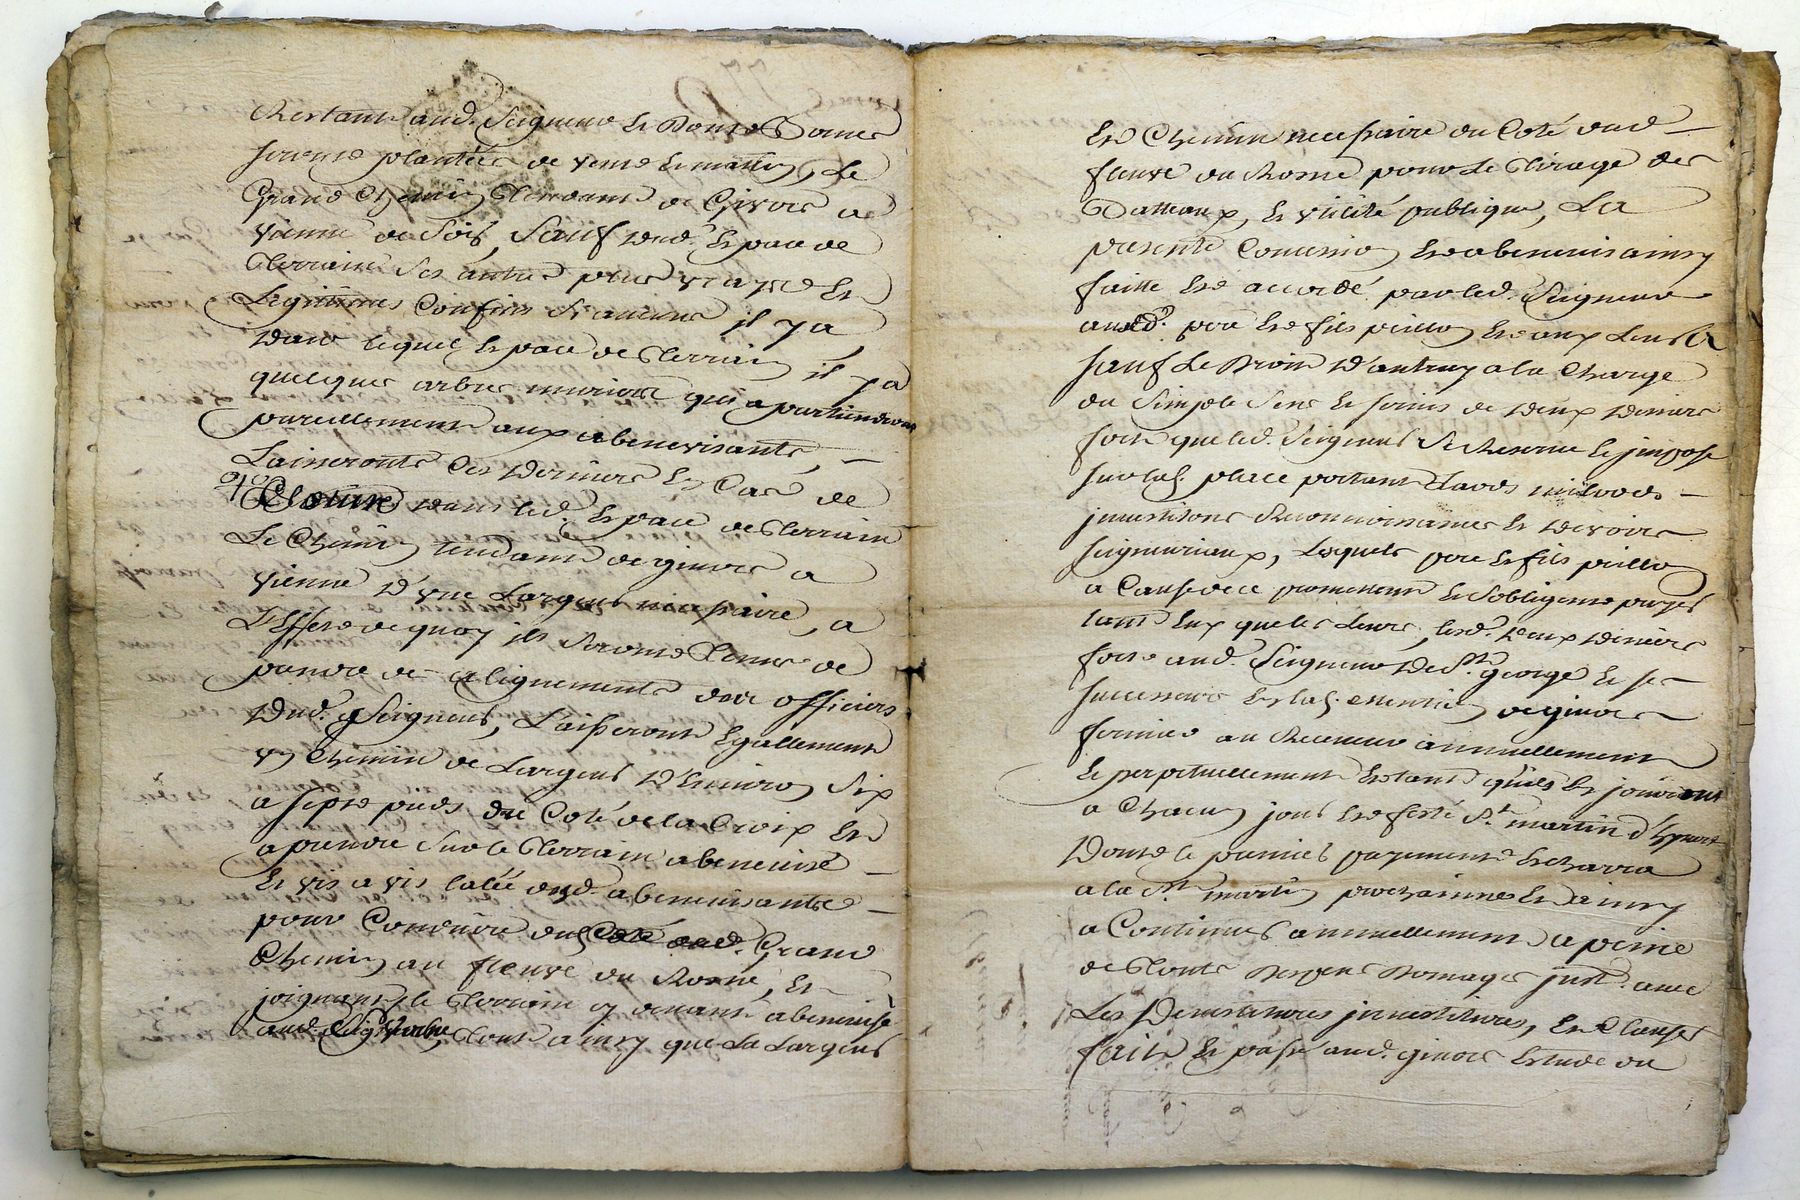 Restant aud. Seigneur et Bornes
seront plantées de verre et mattin, Le
Grand Chemin tendant de Givors a
vienne de Soir, Sauf dud. Espace de
Terrain Ses autres plus vrayes et
Legitimes Confins Si aucuns il y a,
dans lequel Espace de Terrain il y a
quelques arbres muriers qui apartiendront
pareillement aux abenevisants,
Laisseronts Ces Derniers En Cas de
Cloture dans led. Espace de Terrain
Le Chemin tendant de givors a
vienne D'une Largeur necessaire, a
L'Effet de quoy ils Seront tenus de
prendre des alignements des officiers
Dud. Seigneur, Laisseront Egallement
un Chemin de Largeur D'Environ Six
a sept pieds du Coté de la Croix Et
a prendre Sur le Terrain abenevisé
Et vis a vis l'alée desd. abenevisants
pour Conduire dud. Grand
Chemin au fleuve du Rosne, Et
joignant le Terrain cy devant abenevisé
aud. tout ainsy que La Largeur
Et Chemin necessaire du Coté dud.
fleuve du Rosne pour Le Tirage des
Batteaux, Et utilité publique, La
presente Concession Et abenevis ainsy
faitte Et accordé par led. Seigneur
ausd. pere Et fils pour Eux Et aux Leurs
Sauf Le Droit D'autruy a la Charge
du Simple Sens Et Servis de deux deniers
fort que led. Seigneur Se Reserve Et impose
Sur lad. place portant Laods milaods
investisons Reconnoissances Et devoirs
Seigneuriaux, Lesquels pere Et fils
a Cause de ce promettent Et S'obligent payer
tant Eux que les Leurs, lesd. deux deniers
forts aud. Seigneur De St. george Et ses
Successeurs En lad. de givors
fermier ou Receveur annuellement
Et perpetuellement Et tant qu'ils En jouiront
a Chacun jour Et feste St. martin d'hyver
Dont le premier payement Echerra
a la St. martin prochainne Et ainsy
a Continuer annuellement a peine
de Touts Depens Domages jnst. avec
Les Devestitures jnvestitures, Et Clauses
fait Et passé aud. givors Etude du